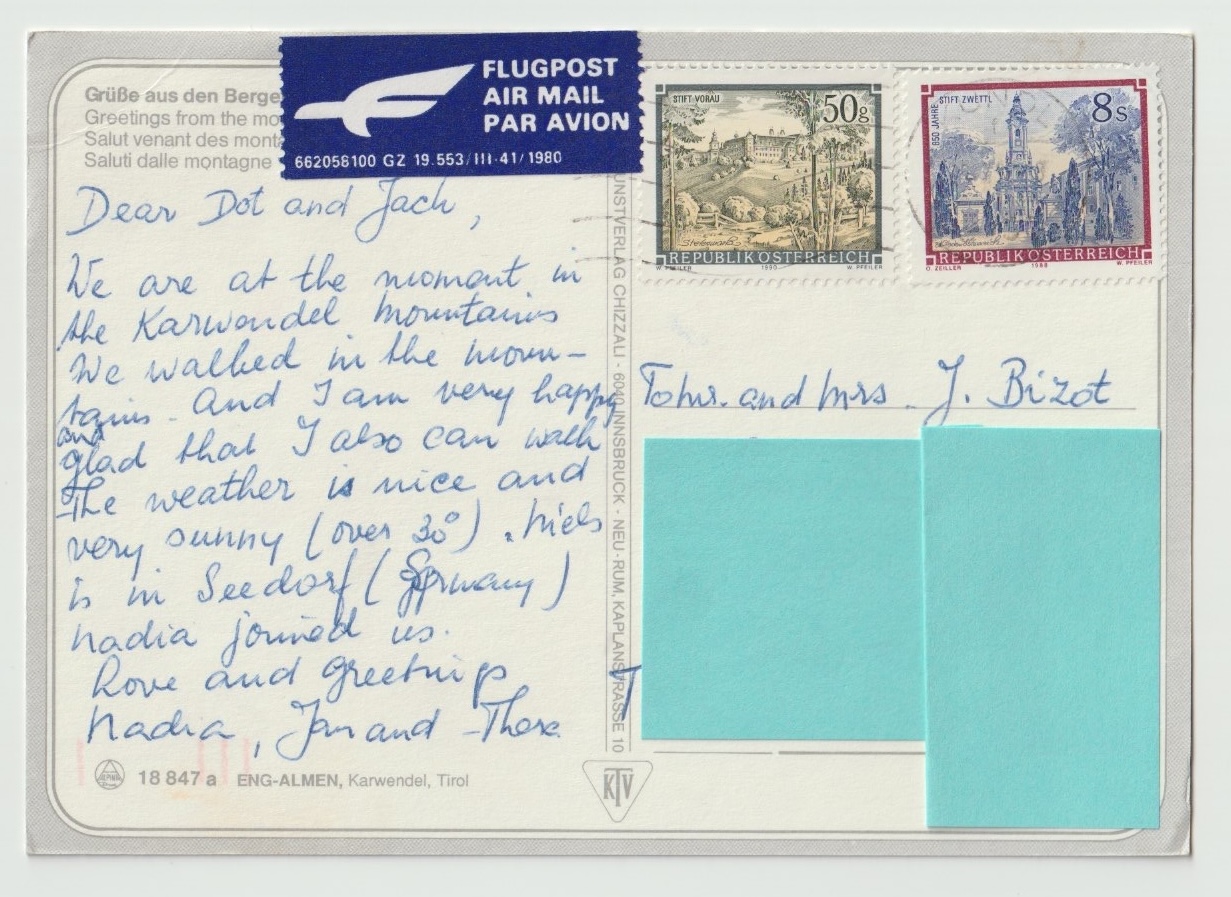 Grüße aus den Berge
Greetings from the mo
Salut venant des monta
Saluti dalle montagne
FLUGPOST
AIR MAIL
PAR AVION
662058100 GZ 19.553/III-41/1980
Dear Dot and Jack,
We are at the moment in
the Karwendel mountains
We walked in the moun-
tains. And I am very happy
and
glad that I also can walk
The weather is nice and
very sunny (over 30°). Niels
is in Seedorf (Germany)
Nadia joined us.
Love and greetings
Nadia, Jan and Thera
18 847 a ENG-ALMEN, Karwendel, Tirol
UNSTVERLAG CHIZZALI · 6040 INNSBRUCK · NEU-RUM, KAPLANSTRASSE 10
KTV
STIFT VORAU
50g
Steiermark
REPUBLIK ÖSTERREICH
W. PFEILER 1990 W. PFEILER
850 JAHRE STIFT ZWETTL
8s
REPUBLIK ÖSTERREICH
O. ZEILLER 1988 W. PFEILER
To Mr. and Mrs. J. Bizot
T